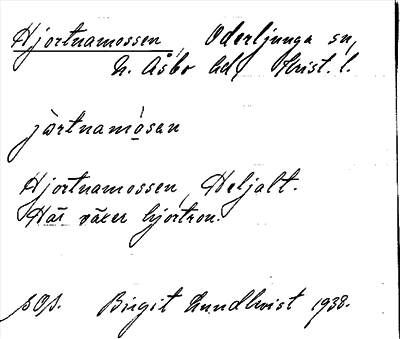 Hjortnamossen, Oderljunga sn,
N. Åsbo hd, Krist. l.
jàrtnamósan
Hjortnamossen, Heljalt.
Här växer hjortron.
sOp. Birgit Lundkvist 1938.